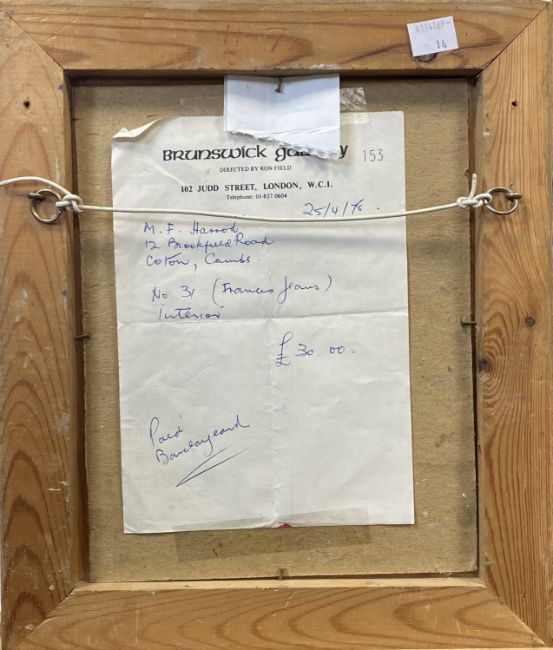 14
BRUNSWICK GALLERY
153
DIRECTED BY RON FIELD
102 JUDD STREET, LONDON, W.C.1.
Telephone: 01-837 0604
25/4/76.
M. F. Harrod
12 Brookfield Road
Coton, Cambs.
No 31 (Frances Jeans)
interior
£30.00.
Paid
Barclaycard